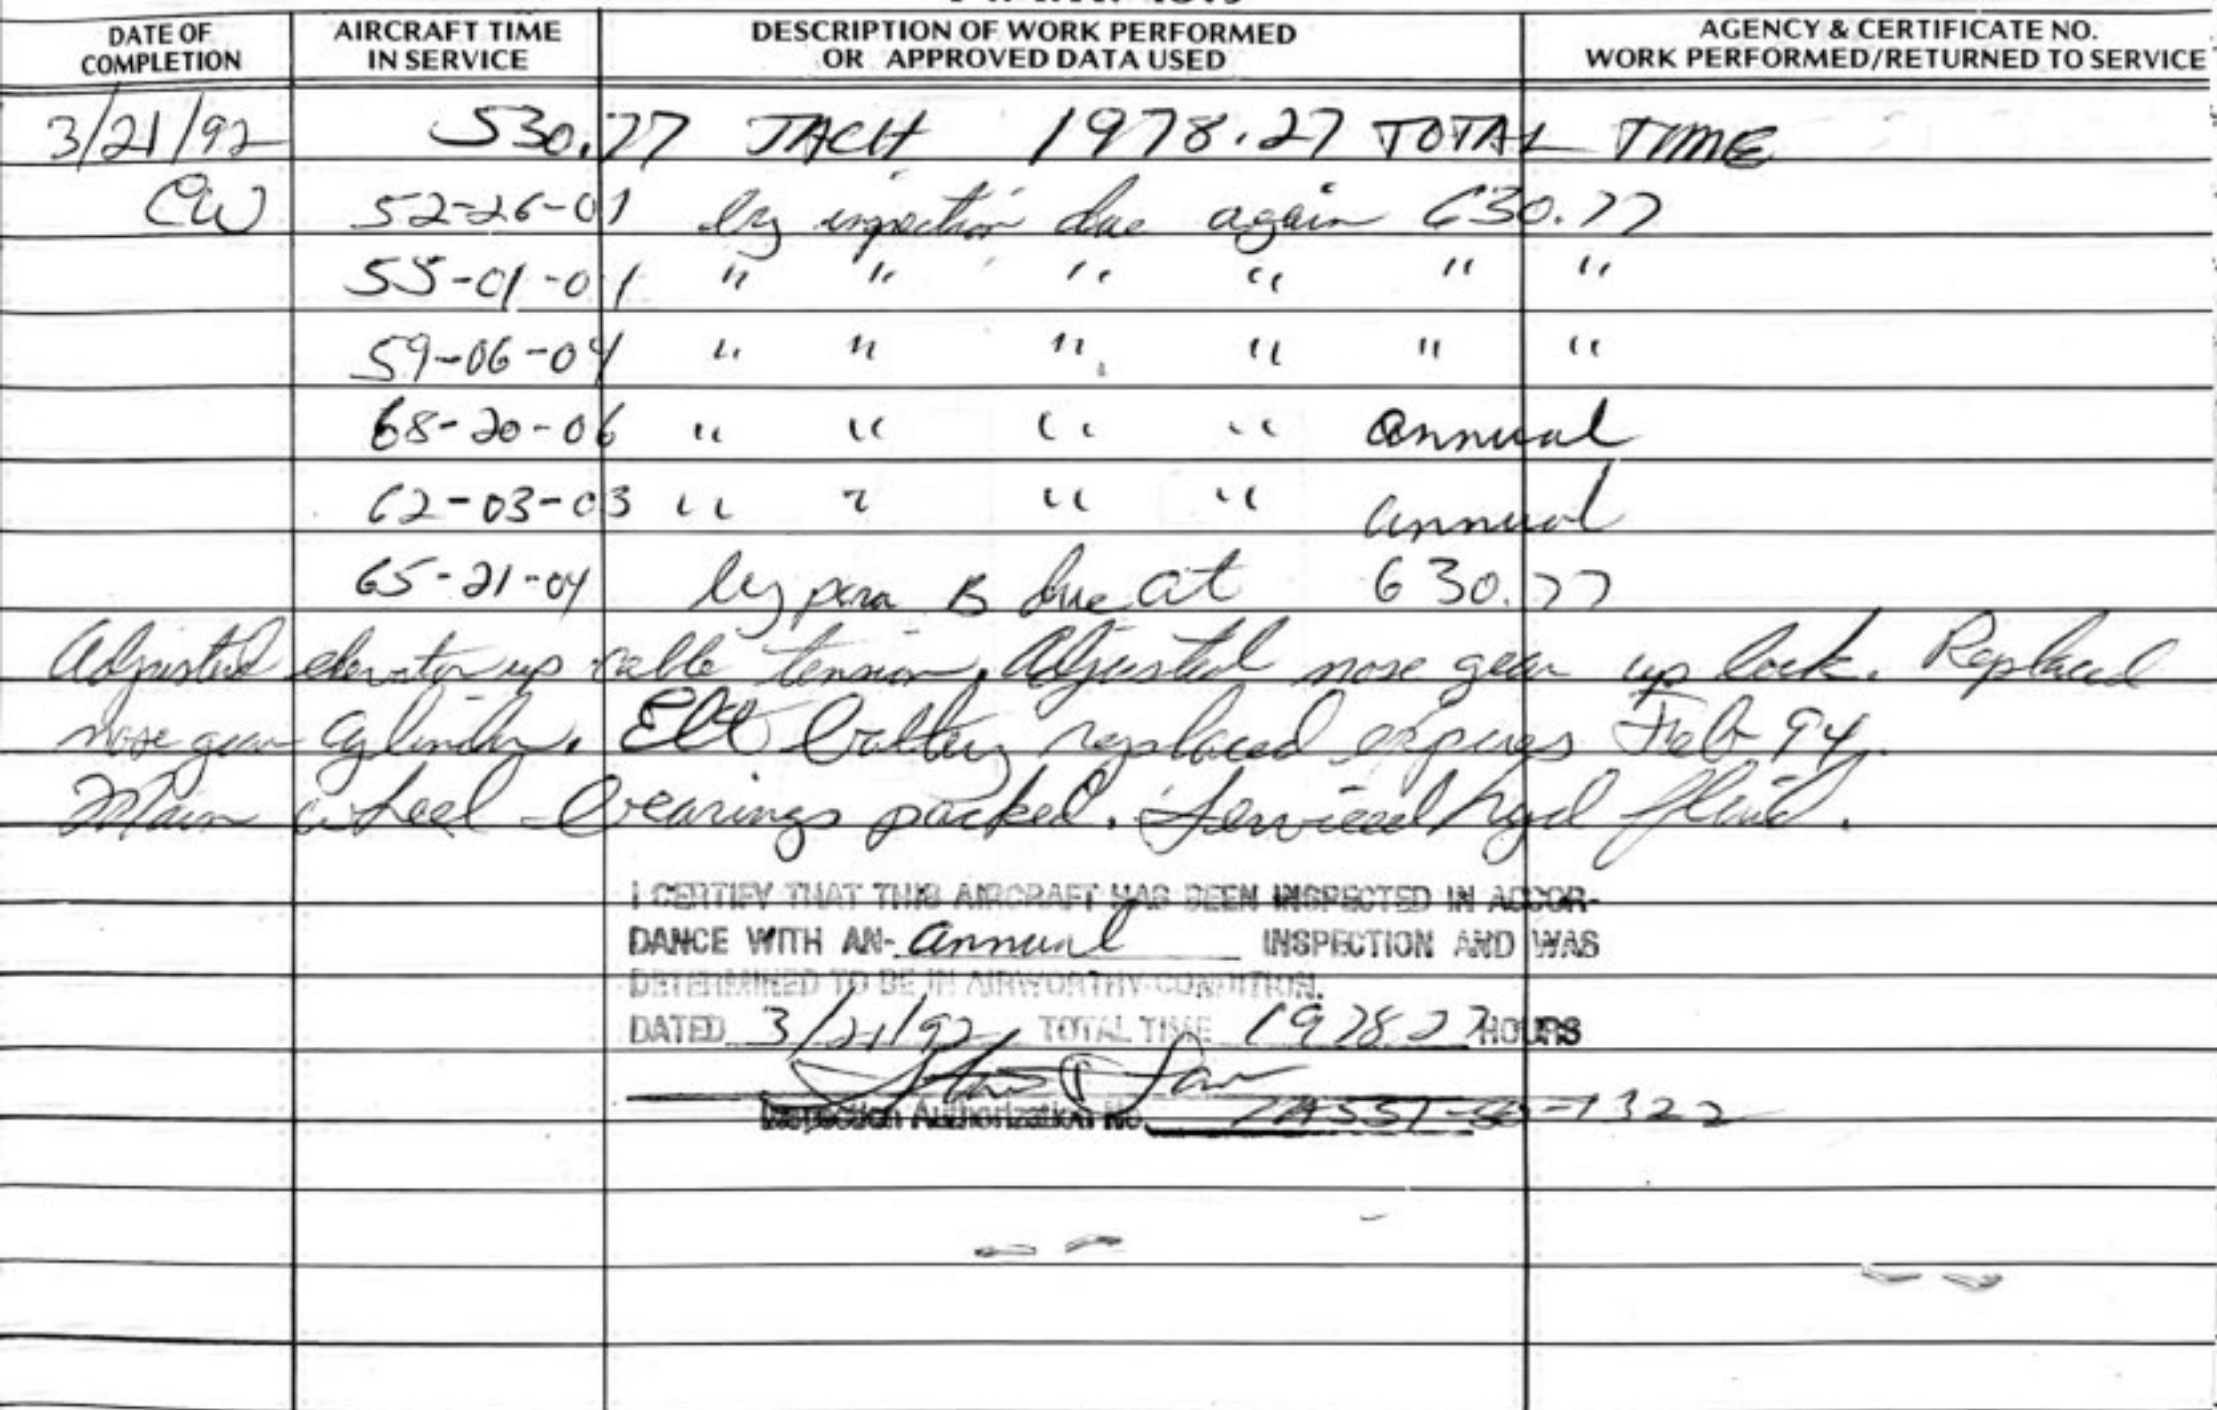 DATE OF COMPLETION AIRCRAFT TIME IN SERVICE DESCRIPTION OF WORK PERFORMED OR APPROVED DATA USED AGENCY & CERTIFICATE NO. WORK PERFORMED/RETURNED TO SERVICE
3/21/92 530.77 TACH 1978.27 TOTAL TIME
CW 52-26-01 by inspection due again 630.77
55-01-01 " " " " " "
59-06-04 " " " " " "
68-20-06 " " " " annual
62-03-03 " " " " annual
65-21-04 by para B due at 630.77
Adjusted elevator up cable tension. Adjusted nose gear up lock. Replaced
nose gear cylinder. Elt battery replaced expires Feb 94.
Main wheel bearings packed. Serviced hyd fluid.
I CERTIFY THAT THIS AIRCRAFT HAS BEEN INSPECTED IN ACCOR-
DANCE WITH AN- annual INSPECTION AND WAS
DETERMINED TO BE IN AIRWORTHY CONDITION.
DATED 3/21/92 TOTAL TIME 1978.27 HOURS
Inspection Authorization No.